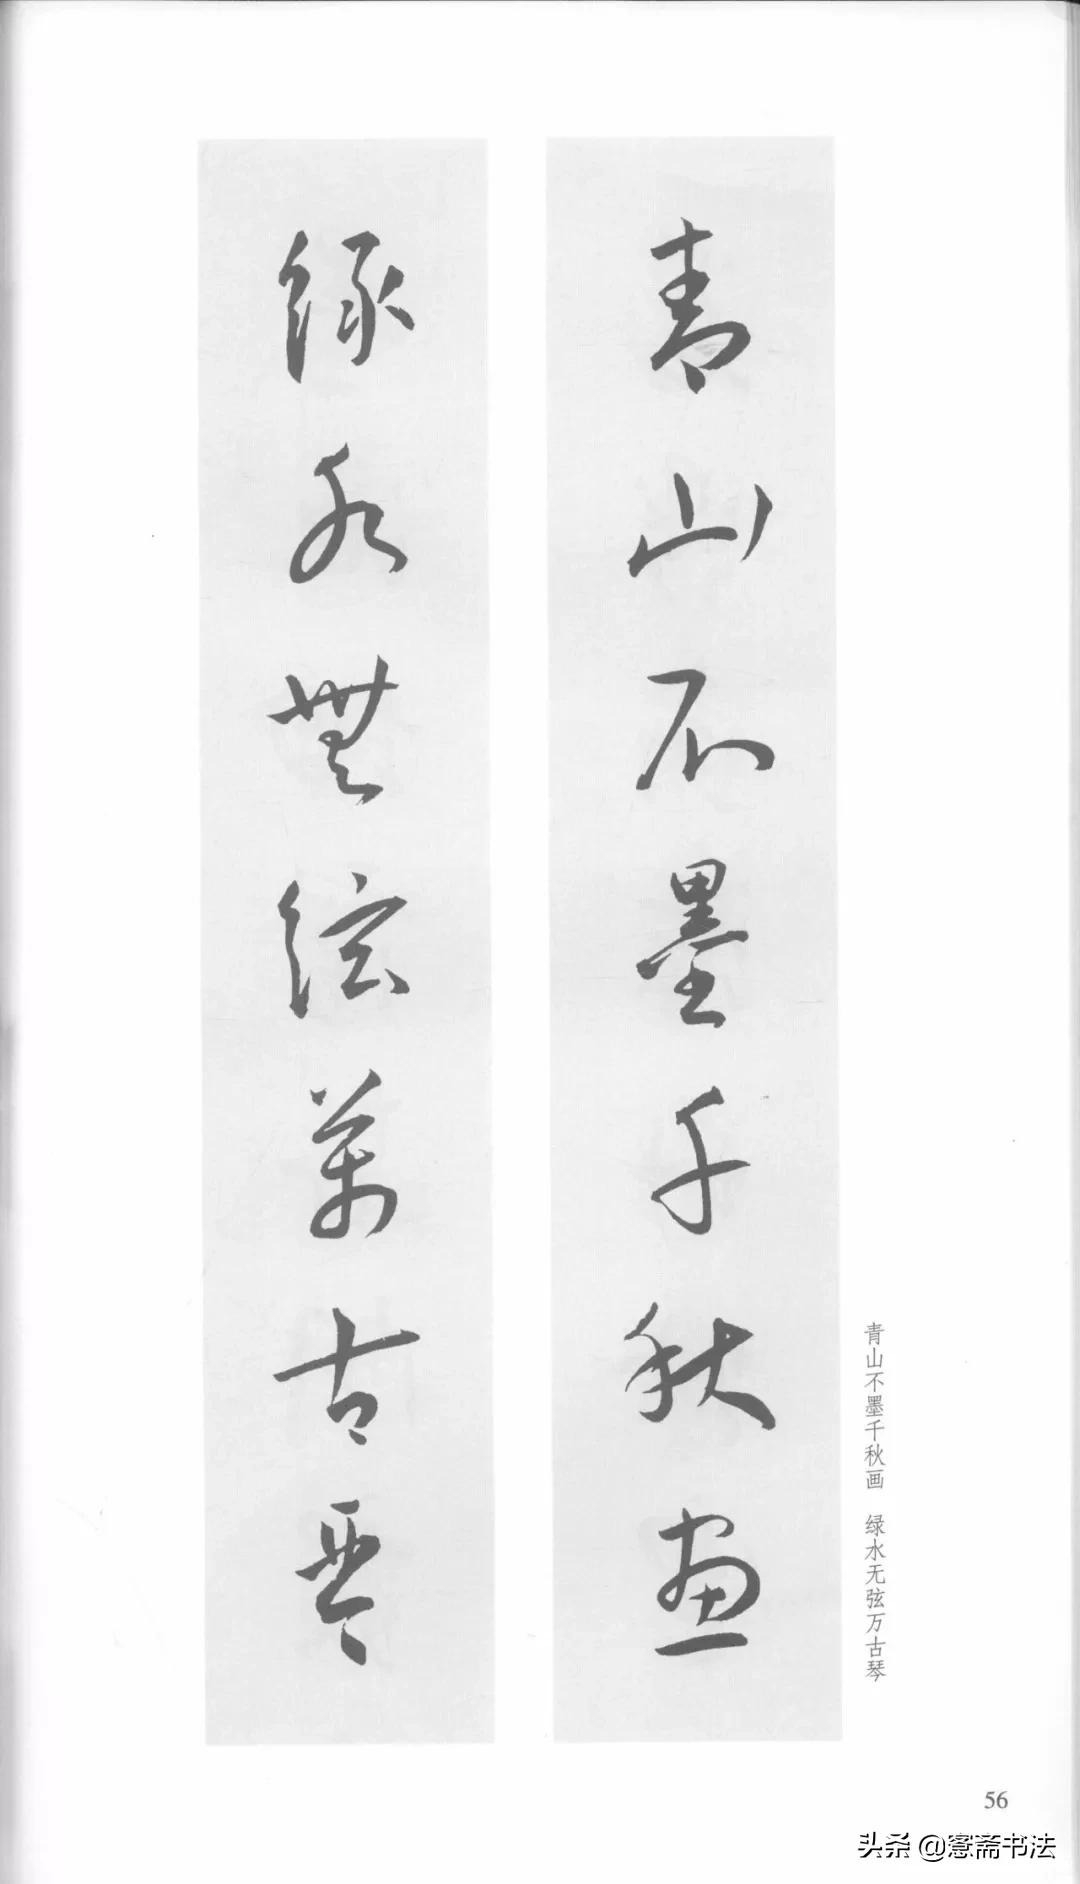 青山不墨千秋畫
綠水無絃萬古琴
青山不墨千秋画 绿水无弦万古琴
56
头条 @窓斋书法